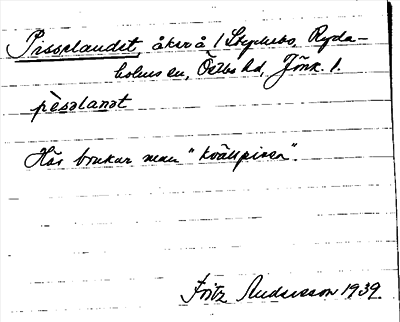 Pisselandet, åker å Stephebo, Ryda-
holms sn, Östbo hd, Jönk. l.
pèsəlandət
Här brukar man "kvällpissa".
Fritz Andersson 1939.